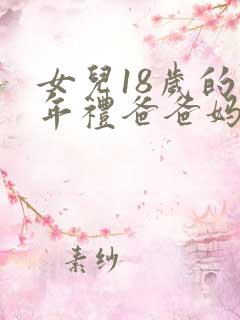 女兒18歲的
年禮爸爸媽
素紗